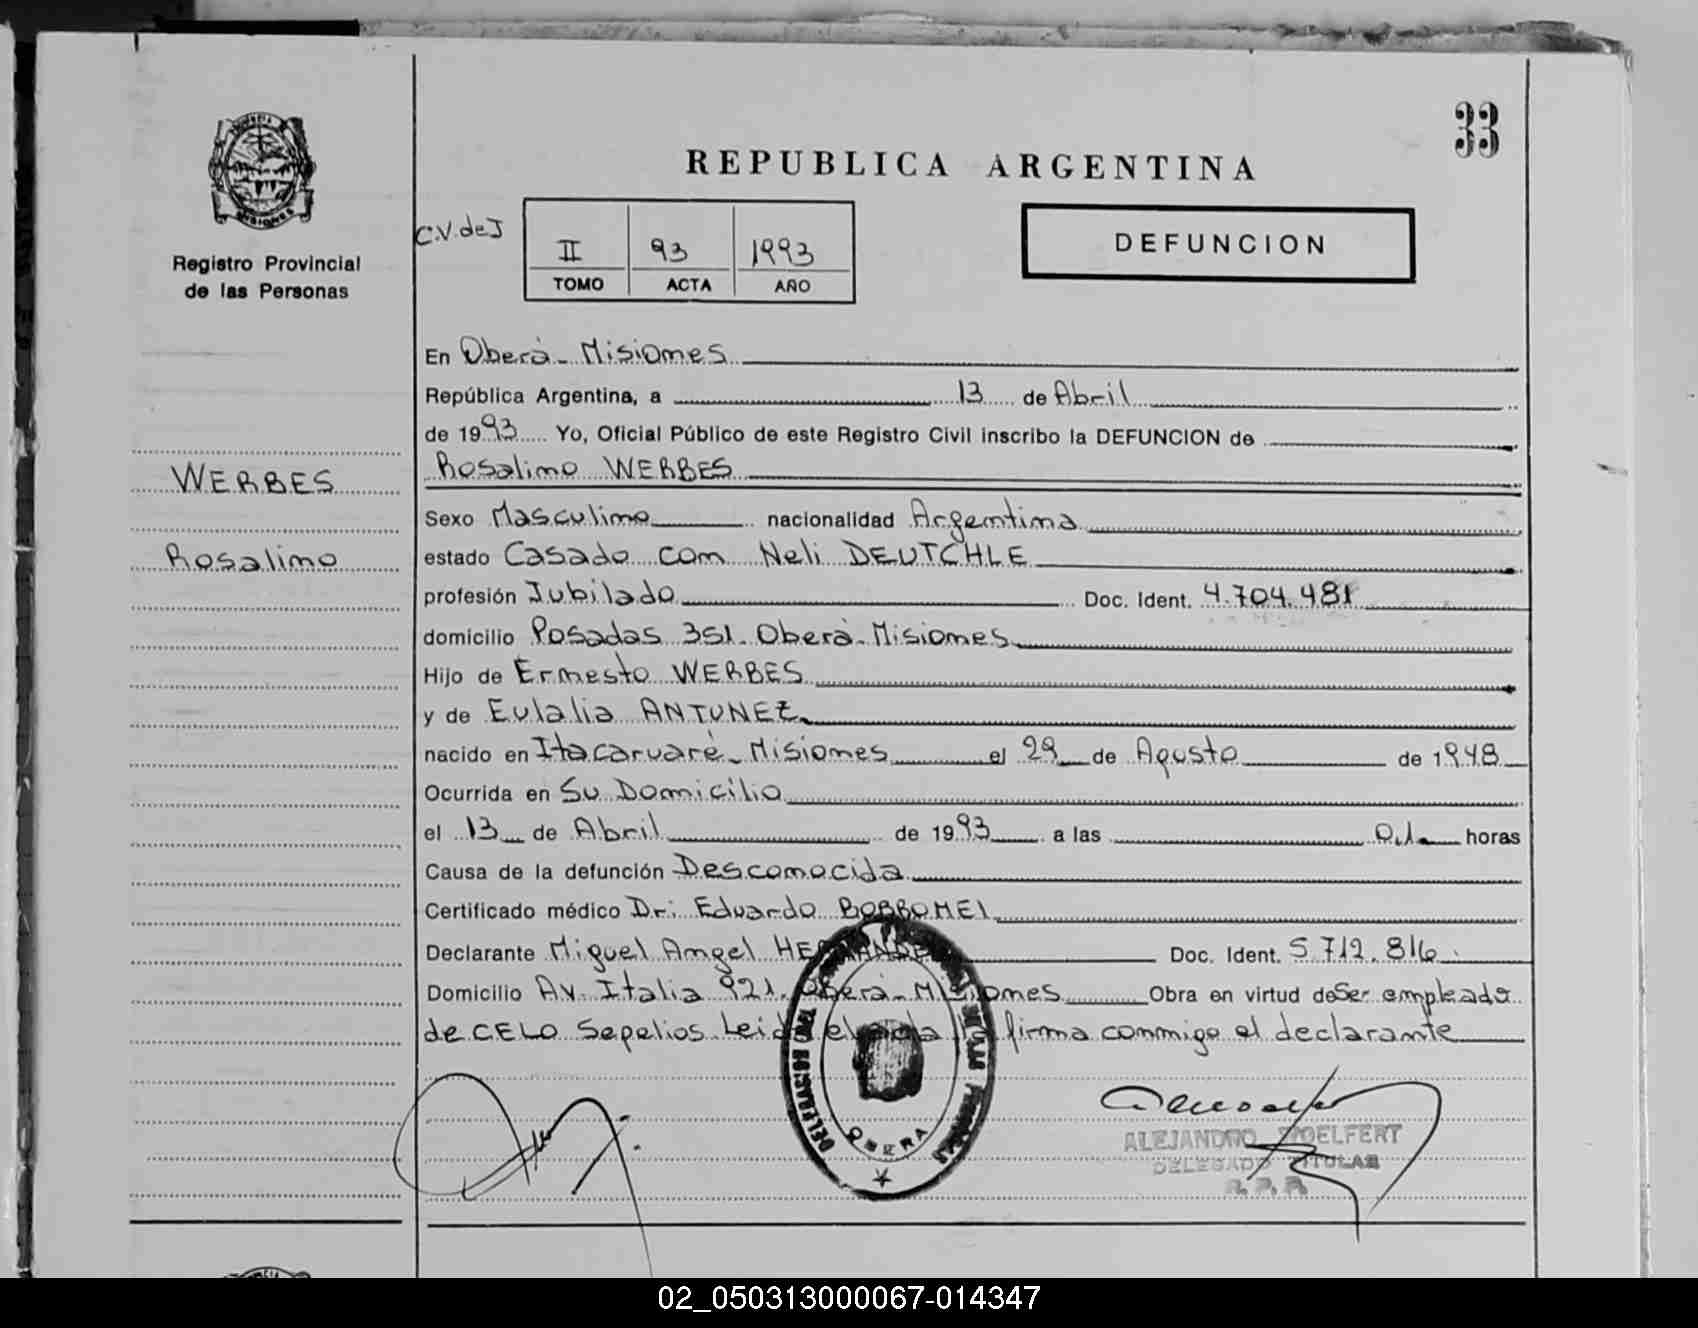 33
REPUBLICA ARGENTINA
Registro Provincial
de las Personas
C.V. de J
II 93 1993
TOMO ACTA AÑO
DEFUNCION
En Oberá - Misiones
República Argentina, a 13 de Abril
de 1993 Yo, Oficial Público de este Registro Civil inscribo la DEFUNCION de
Rosalino WERBES
WERBES
Rosalino
Sexo Masculino nacionalidad Argentina
estado Casado con Neli DEUTCHLE
profesión Jubilado Doc. Ident. 4.704.481
domicilio Posadas 351. Oberá - Misiones
Hijo de Ernesto WERBES
y de Eulalia ANTUNEZ
nacido en Itacaruaré - Misiones el 29 de Agosto de 1948
Ocurrida en Su Domicilio
el 13 de Abril de 1993 a las 0,1 horas
Causa de la defunción Desconocida
Certificado médico Dr. Eduardo BORROMEI
Declarante Miguel Angel Doc. Ident. 5.712.816
Domicilio Av. Italia 921. Oberá - Misiones Obra en virtud de Ser empleado
de CELO Sepelios Leida el acta firma conmigo el declarante
OBERA
ALEJANDRO WOELFERT
DELEGADO TITULAR
R. P. P.
02_050313000067-014347